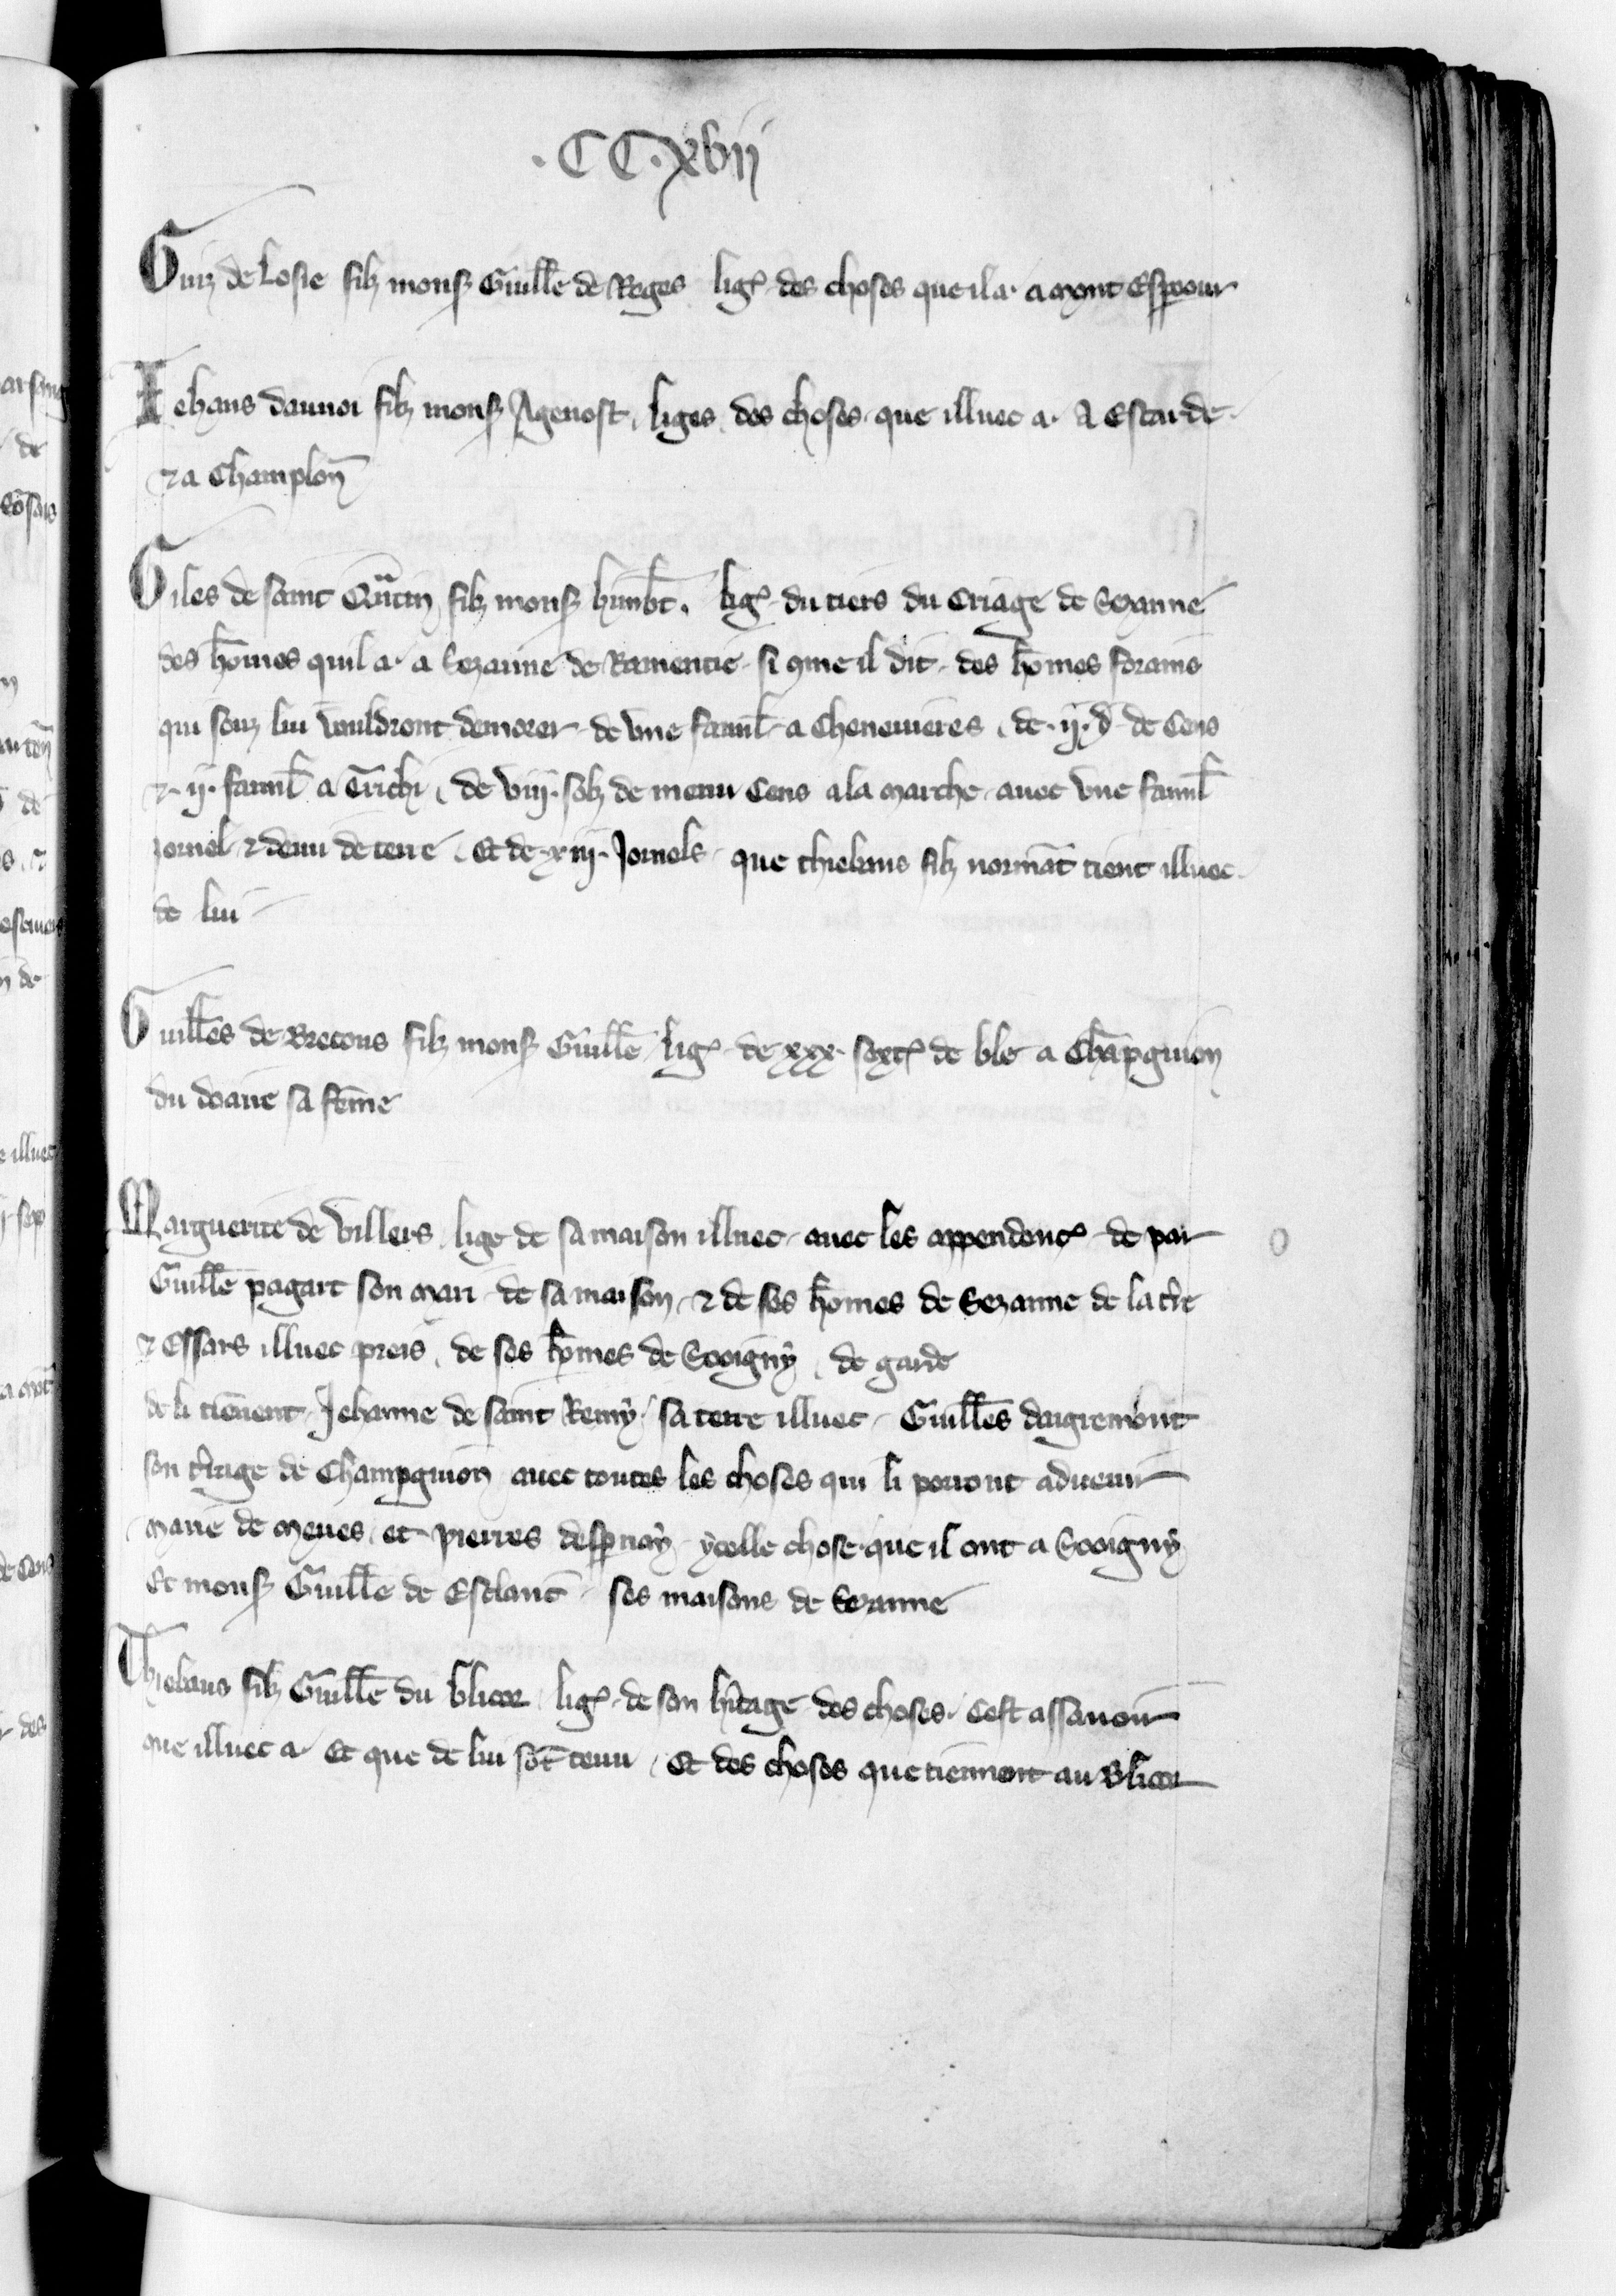 .CC.xvii
Guiz de Losie filz mons Guille de Reges lig des choses que il a a Mont Espoour
Iehans daunoi filz mons Agenost liges des choses que illuec a. A Escarde
⁊ a Champlon̄
Giles de saint Quētin filz mons humbt. lig du tiers du Criage de Sezanne
des hōmes quil a a Sezanne de Ramentie si 9me il dit des hōmes forains
qui souz lui vouldront demorer de vne famil a Chenevieres de .ij. d de Cens
⁊ .ij. famil a Crichi de viij. solz de menu Cens a la marche auec vne famil
jornel ⁊ demi de terre Et de xiij. Jornels que thiebaus filz normāt tient illuec
de lui
Guilles de Brecons filz mons Guille lig de xxx. sext de ble a Chāpguion
du doaire sa fēme
Marguerite de villers lige de sa maison illuec auec les appendenc de par
Guille pagart son mari de sa maison ⁊ de ses hōmes de Sezanne de la tre
⁊ Essars illuec preis de ses hōmes de Sooigny de garde
de li tienent Jehanne de saint Remy sa terre illuec Guilles daigremont
son trage de Champguion auec toutes les choses qui li porront aduenir
Marie de Meues et pierres despnay ycelle chose que il ont a Sooigny
Et mons Guille de Esclant ses maisons de Sezanne
Thiebaus filz Guille du blicor lig de son hitage des choses Cest assauoir
que illuec a Et que de lui sōt tenu Et des choses que tiennent au Blicor